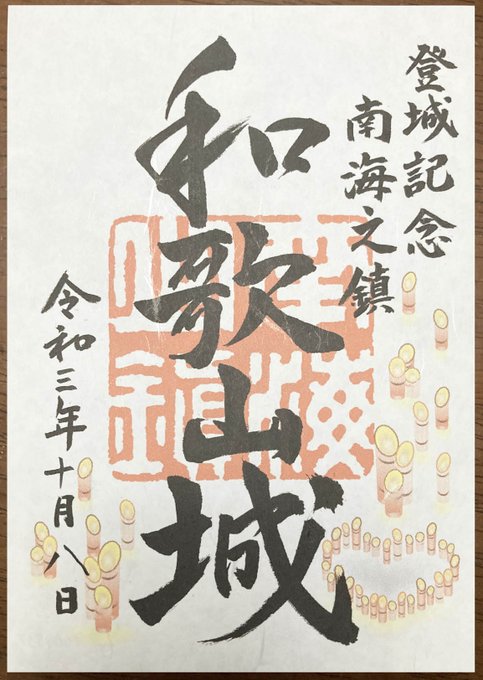 登城記念
南海之鎮
和歌山城
令和三年十月八日